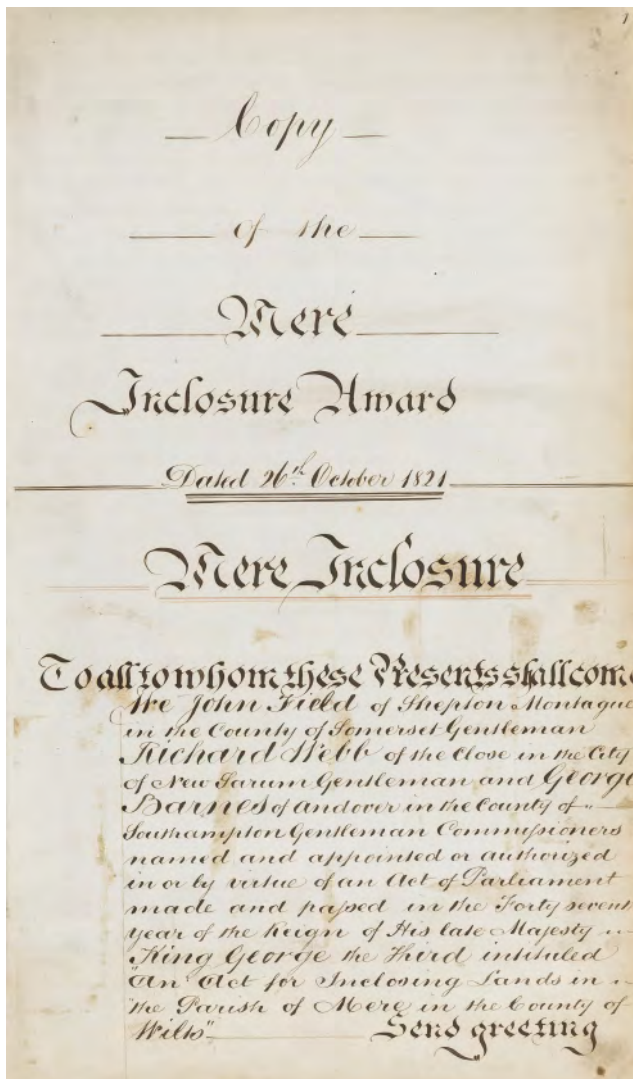 1
Copy
of the
Mere
Inclosure Award
Dated 26th October 1821
Mere Inclosure
To all to whom these Presents shall come
We John Field of Shepton Montague
in the County of Somerset Gentleman
Richard Webb of the Close in the City
of New Sarum Gentleman and George
Barnes of Andover in the County of
Southampton Gentleman Commissioners
named and appointed or authorized
in or by virtue of an Act of Parliament
made and passed in the Forty seventh
year of the Reign of His late Majesty
King George the Third intituled
"An Act for Inclosing Lands in
"the Parish of Mere in the County of
Wilts" Send greeting